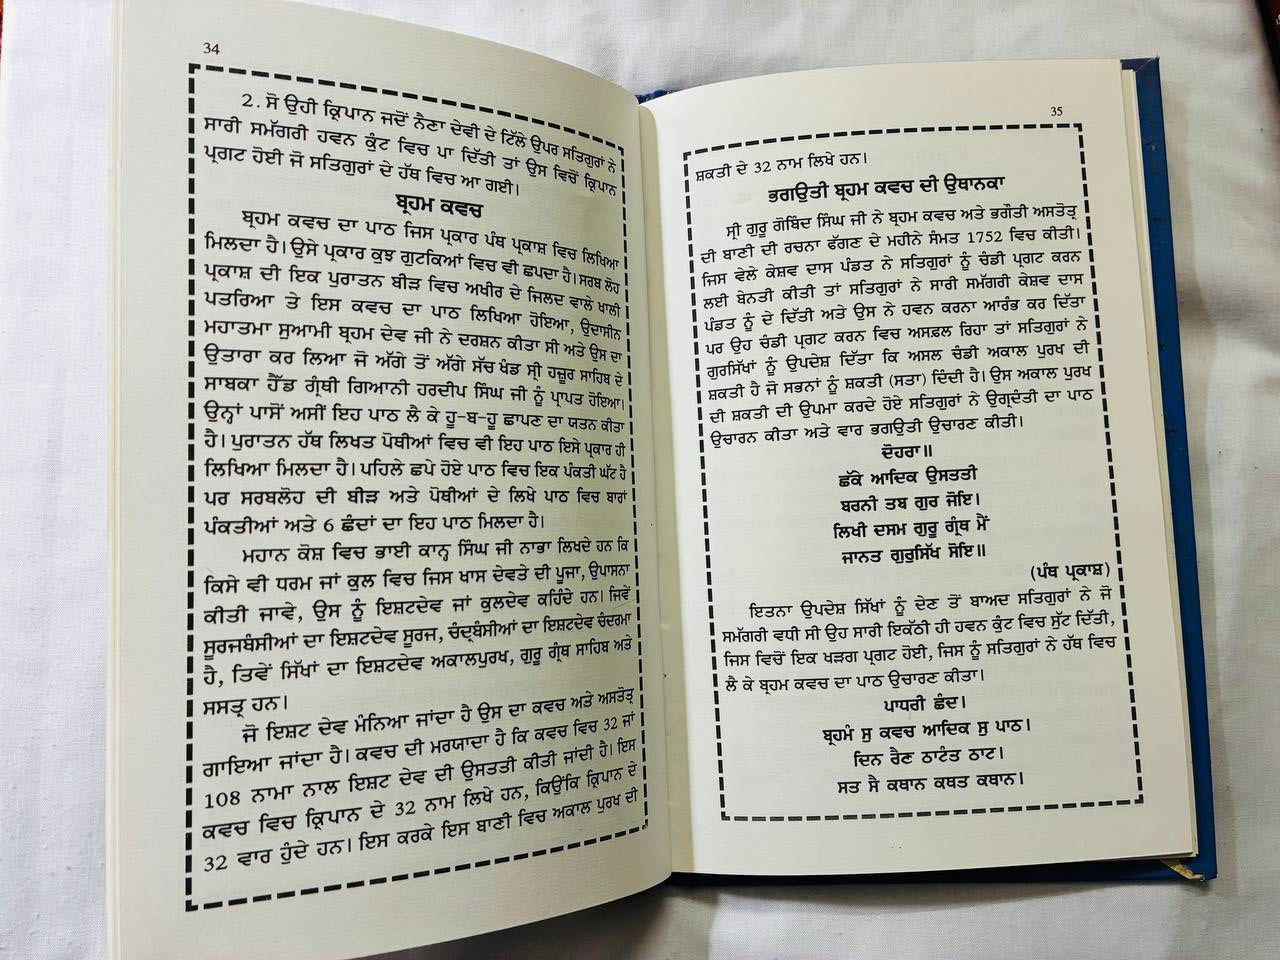 34
2. ਸੋ ਉਹੀ ਕ੍ਰਿਪਾਨ ਜਦੋਂ ਨੈਣਾ ਦੇਵੀ ਦੇ ਟਿੱਲੇ ਉਪਰ ਸਤਿਗੁਰਾਂ ਨੇ
ਸਾਰੀ ਸਮੱਗਰੀ ਹਵਨ ਕੁੰਟ ਵਿਚ ਪਾ ਦਿੱਤੀ ਤਾਂ ਉਸ ਵਿਚੋਂ ਕ੍ਰਿਪਾਨ
ਪ੍ਰਗਟ ਹੋਈ ਜੋ ਸਤਿਗੁਰਾਂ ਦੇ ਹੱਥ ਵਿਚ ਆ ਗਈ।
ਬ੍ਰਹਮ ਕਵਚ
ਬ੍ਰਹਮ ਕਵਚ ਦਾ ਪਾਠ ਜਿਸ ਪ੍ਰਕਾਰ ਪੰਥ ਪ੍ਰਕਾਸ਼ ਵਿਚ ਲਿਖਿਆ
ਮਿਲਦਾ ਹੈ। ਉਸੇ ਪ੍ਰਕਾਰ ਕੁਝ ਗੁਟਕਿਆਂ ਵਿਚ ਵੀ ਛਪਦਾ ਹੈ। ਸਰਬ ਲੋਹ
ਪ੍ਰਕਾਸ਼ ਦੀ ਇਕ ਪੁਰਾਤਨ ਬੀੜ ਵਿਚ ਅਖੀਰ ਦੇ ਜਿਲਦ ਵਾਲੇ ਖਾਲੀ
ਪਤਰਿਆ ਤੇ ਇਸ ਕਵਚ ਦਾ ਪਾਠ ਲਿਖਿਆ ਹੋਇਆ, ਉਦਾਸੀਨ
ਮਹਾਤਮਾ ਸੁਆਮੀ ਬ੍ਰਹਮ ਦੇਵ ਜੀ ਨੇ ਦਰਸ਼ਨ ਕੀਤਾ ਸੀ ਅਤੇ ਉਸ ਦਾ
ਉਤਾਰਾ ਕਰ ਲਿਆ ਜੋ ਅੱਗੇ ਤੋਂ ਅੱਗੇ ਸੱਚ ਖੰਡ ਸ੍ਰੀ ਹਜ਼ੂਰ ਸਾਹਿਬ ਦੇ
ਸਾਬਕਾ ਹੈੱਡ ਗ੍ਰੰਥੀ ਗਿਆਨੀ ਹਰਦੀਪ ਸਿੰਘ ਜੀ ਨੂੰ ਪ੍ਰਾਪਤ ਹੋਇਆ।
ਉਨ੍ਹਾਂ ਪਾਸੋਂ ਅਸੀਂ ਇਹ ਪਾਠ ਲੈ ਕੇ ਹੂ-ਬ-ਹੂ ਛਾਪਣ ਦਾ ਯਤਨ ਕੀਤਾ
ਹੈ। ਪੁਰਾਤਨ ਹੱਥ ਲਿਖਤ ਪੋਥੀਆਂ ਵਿਚ ਵੀ ਇਹ ਪਾਠ ਇਸੇ ਪ੍ਰਕਾਰ ਹੀ
ਲਿਖਿਆ ਮਿਲਦਾ ਹੈ। ਪਹਿਲੇ ਛਪੇ ਹੋਏ ਪਾਠ ਵਿਚ ਇਕ ਪੰਕਤੀ ਘੱਟ ਹੈ
ਪਰ ਸਰਬਲੋਹ ਦੀ ਬੀੜ ਅਤੇ ਪੋਥੀਆਂ ਦੇ ਲਿਖੇ ਪਾਠ ਵਿਚ ਬਾਰਾਂ
ਪੰਕਤੀਆਂ ਅਤੇ 6 ਛੰਦਾਂ ਦਾ ਇਹ ਪਾਠ ਮਿਲਦਾ ਹੈ।
ਮਹਾਨ ਕੋਸ਼ ਵਿਚ ਭਾਈ ਕਾਨ੍ਹ ਸਿੰਘ ਜੀ ਨਾਭਾ ਲਿਖਦੇ ਹਨ ਕਿ
ਕਿਸੇ ਵੀ ਧਰਮ ਜਾਂ ਕੁਲ ਵਿਚ ਜਿਸ ਖਾਸ ਦੇਵਤੇ ਦੀ ਪੂਜਾ, ਉਪਾਸਨਾ
ਕੀਤੀ ਜਾਵੇ, ਉਸ ਨੂੰ ਇਸ਼ਟਦੇਵ ਜਾਂ ਕੁਲਦੇਵ ਕਹਿੰਦੇ ਹਨ। ਜਿਵੇਂ
ਸੂਰਜਬੰਸੀਆਂ ਦਾ ਇਸ਼ਟਦੇਵ ਸੂਰਜ, ਚੰਦ੍ਰਬੰਸੀਆਂ ਦਾ ਇਸ਼ਟਦੇਵ ਚੰਦਰਮਾ
ਹੈ, ਤਿਵੇਂ ਸਿੱਖਾਂ ਦਾ ਇਸ਼ਟਦੇਵ ਅਕਾਲਪੁਰਖ, ਗੁਰੂ ਗ੍ਰੰਥ ਸਾਹਿਬ ਅਤੇ
ਸਸਤ੍ਰ ਹਨ।
ਜੋ ਇਸ਼ਟ ਦੇਵ ਮੰਨਿਆ ਜਾਂਦਾ ਹੈ ਉਸ ਦਾ ਕਵਚ ਅਤੇ ਅਸਤੋਤ੍ਰ
ਗਾਇਆ ਜਾਂਦਾ ਹੈ। ਕਵਚ ਦੀ ਮਰਯਾਦਾ ਹੈ ਕਿ ਕਵਚ ਵਿਚ 32 ਜਾਂ
108 ਨਾਮਾ ਨਾਲ ਇਸ਼ਟ ਦੇਵ ਦੀ ਉਸਤਤੀ ਕੀਤੀ ਜਾਂਦੀ ਹੈ। ਇਸ
ਕਵਚ ਵਿਚ ਕ੍ਰਿਪਾਨ ਦੇ 32 ਨਾਮ ਲਿਖੇ ਹਨ, ਕਿਉਂਕਿ ਕ੍ਰਿਪਾਨ ਦੇ
32 ਵਾਰ ਹੁੰਦੇ ਹਨ। ਇਸ ਕਰਕੇ ਇਸ ਬਾਣੀ ਵਿਚ ਅਕਾਲ ਪੁਰਖ ਦੀ
35
ਸ਼ਕਤੀ ਦੇ 32 ਨਾਮ ਲਿਖੇ ਹਨ।
ਭਗਉਤੀ ਬ੍ਰਹਮ ਕਵਚ ਦੀ ਉਥਾਨਕਾ
ਸ੍ਰੀ ਗੁਰੂ ਗੋਬਿੰਦ ਸਿੰਘ ਜੀ ਨੇ ਬ੍ਰਹਮ ਕਵਚ ਅਤੇ ਭਗੌਤੀ ਅਸਤੋਤ੍ਰ
ਦੀ ਬਾਣੀ ਦੀ ਰਚਨਾ ਫੱਗਣ ਦੇ ਮਹੀਨੇ ਸੰਮਤ 1752 ਵਿਚ ਕੀਤੀ।
ਜਿਸ ਵੇਲੇ ਕੇਸ਼ਵ ਦਾਸ ਪੰਡਤ ਨੇ ਸਤਿਗੁਰਾਂ ਨੂੰ ਚੰਡੀ ਪ੍ਰਗਟ ਕਰਨ
ਲਈ ਬੇਨਤੀ ਕੀਤੀ ਤਾਂ ਸਤਿਗੁਰਾਂ ਨੇ ਸਾਰੀ ਸਮੱਗਰੀ ਕੇਸ਼ਵ ਦਾਸ
ਪੰਡਤ ਨੂੰ ਦੇ ਦਿੱਤੀ ਅਤੇ ਉਸ ਨੇ ਹਵਨ ਕਰਨਾ ਆਰੰਭ ਕਰ ਦਿੱਤਾ
ਪਰ ਉਹ ਚੰਡੀ ਪ੍ਰਗਟ ਕਰਨ ਵਿਚ ਅਸਫ਼ਲ ਰਿਹਾ ਤਾਂ ਸਤਿਗੁਰਾਂ ਨੇ
ਗੁਰਸਿੱਖਾਂ ਨੂੰ ਉਪਦੇਸ਼ ਦਿੱਤਾ ਕਿ ਅਸਲ ਚੰਡੀ ਅਕਾਲ ਪੁਰਖ ਦੀ
ਸ਼ਕਤੀ ਹੈ ਜੋ ਸਭਨਾਂ ਨੂੰ ਸ਼ਕਤੀ (ਸਤਾ) ਦਿੰਦੀ ਹੈ। ਉਸ ਅਕਾਲ ਪੁਰਖ
ਦੀ ਸ਼ਕਤੀ ਦੀ ਉਪਮਾ ਕਰਦੇ ਹੋਏ ਸਤਿਗੁਰਾਂ ਨੇ ਉਗ੍ਰਦੰਤੀ ਦਾ ਪਾਠ
ਉਚਾਰਨ ਕੀਤਾ ਅਤੇ ਵਾਰ ਭਗਉਤੀ ਉਚਾਰਣ ਕੀਤੀ।
ਦੋਹਰਾ॥
ਛੱਕੇ ਆਦਿਕ ਉਸਤਤੀ
ਬਰਨੀ ਤਬ ਗੁਰ ਜੋਇ।
ਲਿਖੀ ਦਸਮ ਗੁਰੂ ਗ੍ਰੰਥ ਮੈਂ
ਜਾਨਤ ਗੁਰਸਿੱਖ ਸੋਇ॥
(ਪੰਥ ਪ੍ਰਕਾਸ਼)
ਇਤਨਾ ਉਪਦੇਸ਼ ਸਿੱਖਾਂ ਨੂੰ ਦੇਣ ਤੋਂ ਬਾਅਦ ਸਤਿਗੁਰਾਂ ਨੇ ਜੋ
ਸਮੱਗਰੀ ਵਧੀ ਸੀ ਉਹ ਸਾਰੀ ਇਕੱਠੀ ਹੀ ਹਵਨ ਕੁੰਟ ਵਿਚ ਸੁੱਟ ਦਿੱਤੀ,
ਜਿਸ ਵਿਚੋਂ ਇਕ ਖੜਗ ਪ੍ਰਗਟ ਹੋਈ, ਜਿਸ ਨੂੰ ਸਤਿਗੁਰਾਂ ਨੇ ਹੱਥ ਵਿਚ
ਲੈ ਕੇ ਬ੍ਰਹਮ ਕਵਚ ਦਾ ਪਾਠ ਉਚਾਰਣ ਕੀਤਾ।
ਪਾਧਰੀ ਛੰਦ।
ਬ੍ਰਹਮੰ ਸੁ ਕਵਚ ਆਦਿਕ ਸੁ ਪਾਠ।
ਦਿਨ ਰੈਣ ਠਾਟੰਤ ਠਾਟ।
ਸਤ ਸੈ ਕਥਾਨ ਕਥਤ ਕਥਾਨ।